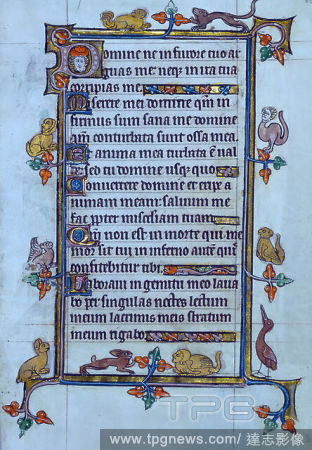 Domine ne in furore tuo ar
guas me: neq; in ira tua
corripias me
Miserere mei domine qm in
firmus sum sana me domine
qm conturbata sunt ossa mea
Et anima mea turbata e val
sed tu domine usq; quo
Convertere domine et eripe a
nimam meam: salvum me
fac pter misericordiam tuam
Qm non est in morte qui me
mor sit tui in inferno autem quis
confitebitur tibi
Laboravi in gemitu meo lava
bo per singulas noctes lectum
meum lacrimis meis stratum
meum rigabo
TPG
www.tpgnews.com/ 達志影像